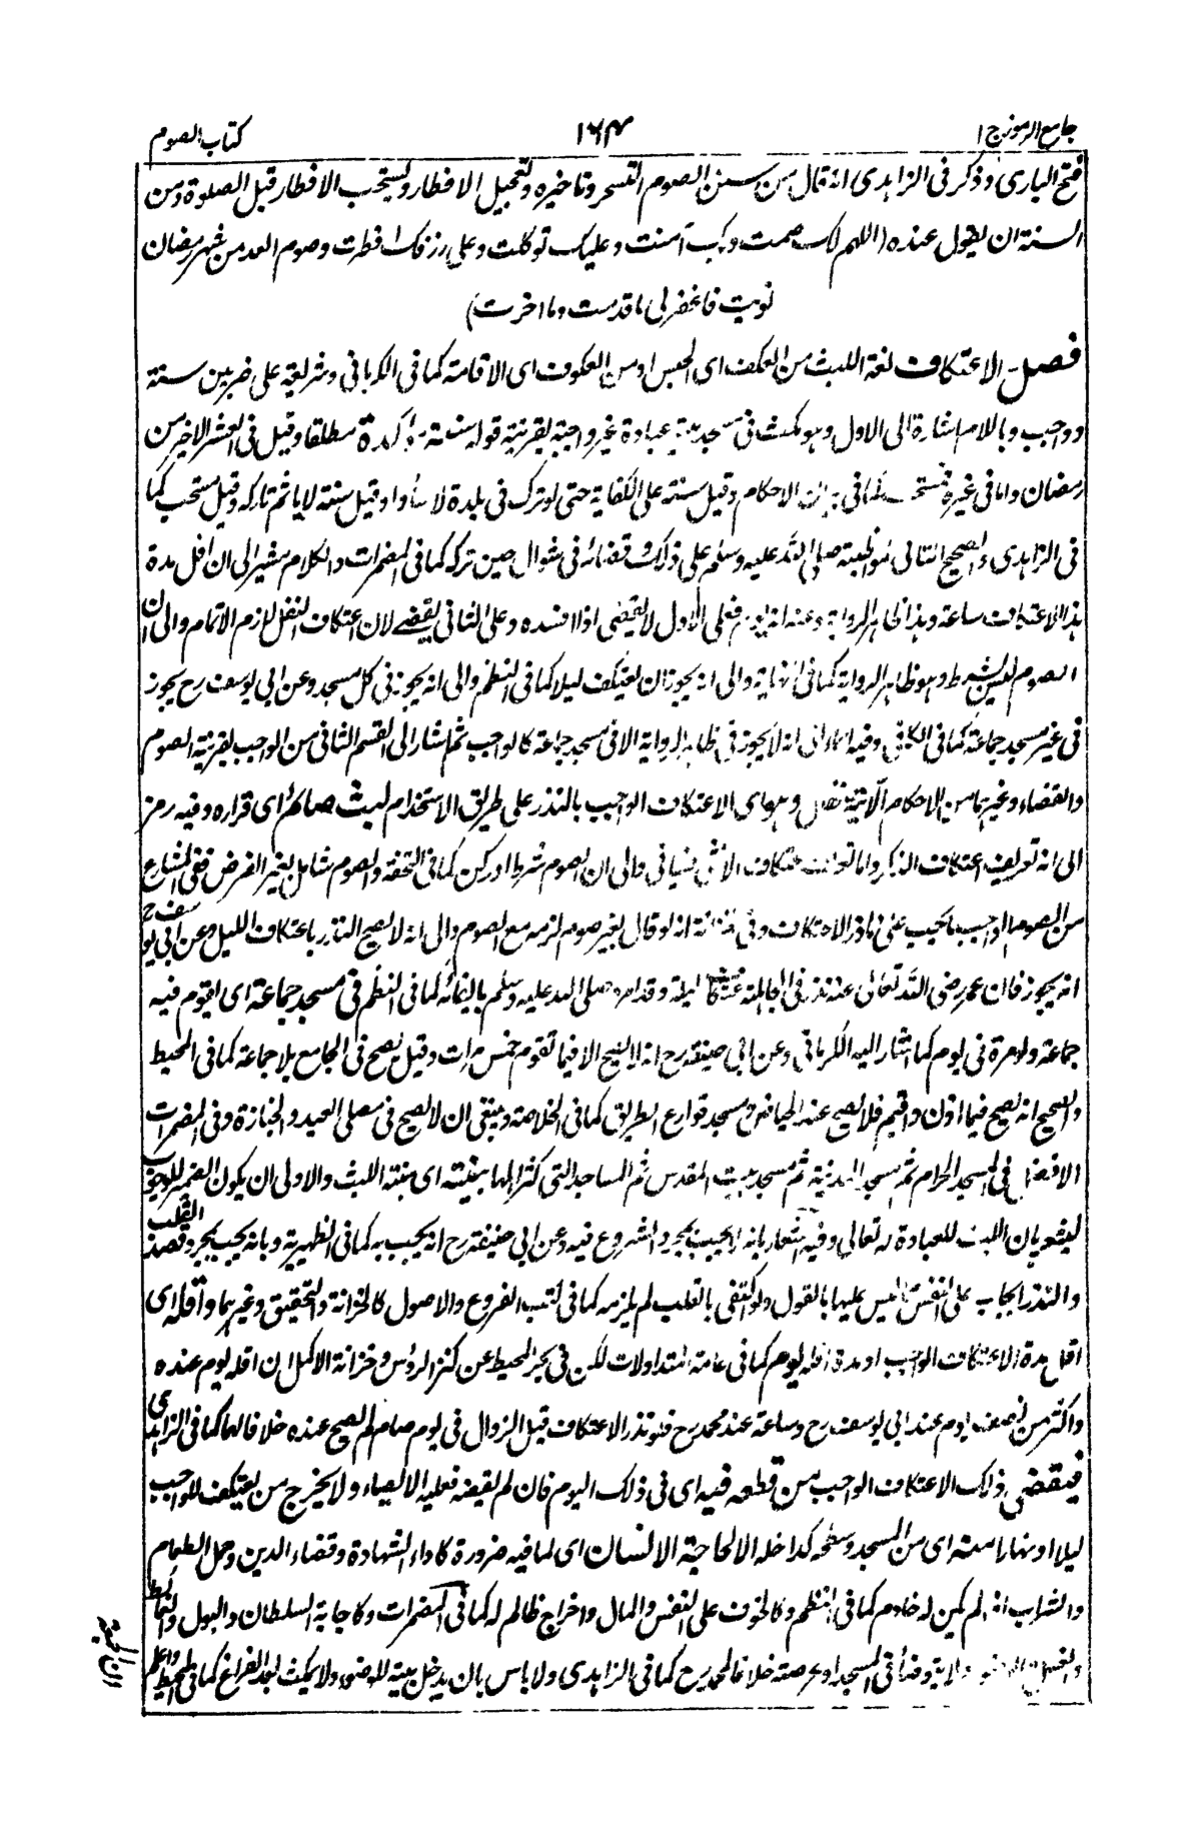 جامع الرموز ج ١
١٦٤
كتاب الصوم
فتح الباري وذكر في الزاهدي انه قال من سنن الصوم التسحر وتاخيره وتعجيل الافطار ويستحب الافطار قبل الصلوة ومن
السنة ان يقول عنده (اللهم لك صمت وبك آمنت وعليك توكلت وعلى رزقك افطرت وصوم الغد من شهر رمضان
نويت فاغفر لي ما قدمت وما اخرت)
فصل- الاعتكاف لغة اللبث من العكف اى الحبس او من العكوف اى الاقامة كما في الكرماني وشريعة على ضربين سنة
وواجب وباللام اشارة الى الاول وهو مكث في مسجد بنية عبادة غير واجبة بقرينة قوله سنة مؤكدة مطلقا وقيل في العشر الاخير من
رمضان واما في غيره فمستحب كما في الاحكام وقيل سنة على الكفاية حتى لو ترك في بلدة لاساؤا وقيل سنة لا ياثم تاركه وقيل مستحب كما
في الزاهدى والصحيح الثاني لمواظبته صلى الله عليه وسلم على ذلك وقضائه في شوال حين تركه كما في المضمرات والكلام مشير الى ان اقل مدة
هذا الاعتكاف ساعة وهذا ظاهر الرواية وعنه انه يوم فعلى الاول لا يقضى اذا افسده وعلى الثاني يقضى لان اعتكاف النفل لازم الاتمام والى ان
الصوم ليس بشرط وهو ظاهر الرواية كما في النهاية والى انه يجوز ان يعتكف ليلا كما في النظم والى انه يجوز في كل مسجد وعن ابي يوسف رح يجوز
في غير مسجد جماعة كما في الكافي وفيه ايماء الى انه لا يجوز في ظاهر الرواية الا في مسجد جماعة كالواجب ثم اشار الى القسم الثاني من الواجب بقرينة الصوم
والقضاء وغيرهما من الاحكام الآتية فقال وهو اى الاعتكاف الواجب بالنذر على طريق الاستخدام لبث صائم اى قراره وفيه رمز
الى انه تعريف اعتكاف الذكر واما تعريف اعتكاف الانثى فسياتى والى ان الصوم شرط او ركن كما في التحفة والصوم شامل لغير الفرض ففي المشارع
من الصوم الواجب ما يجب على ناذر الاعتكاف وفي انه لو قال بغير صوم لزمه مع الصوم والى انه لا يصح النذر باعتكاف الليل وعن ابي يوسف رح
انه يجوز فان عمر رضى الله تعالى عنه نذر في الجاهلية عتكاف ليلة وقد امره صلى الله عليه وسلم بايفائه كما في النظم في مسجد جماعة اى اقوم فيه
جماعة ولو مرة في يوم كما اشار اليه الكرماني وعن ابي حنيفة رح انه لا يصح الا فيما تقوم خمس مرات وقيل يصح في الجامع بلا جماعة كما في المحيط
والصحيح انه يصح فيما اذن واقيم فلا يصح عند الحياض ومسجد قوارع الطريق كما في الخلاصة وينبغي ان لا يصح في مصلى العيد والجنازة وفي المضمرات
الافضل في المسجد الحرام ثم مسجد المدينة ثم مسجد بيت المقدس ثم المساجد التي كثر اهلها بنيته اى بنية اللبث والاولى ان يكون الضمير للوجوب
ليشعر بان اللبث للعبادة له تعالى وفيه اشعار بانه لا يجب بمجرد الشروع فيه وعن ابي حنيفة رح انه يجب به كما في الظهيرية وبانه يجب بمجرد قصد القلب
والنذر ايجاب على النفس ما ليس عليها بالقول ولو اكتفى بالقلب لم يلزمه كما في كتب الفروع والاصول كالخزانة والتحقيق وغيرهما واقله اى
اقل مدة الاعتكاف الواجب او مدة اقله يوم كما في عامة المتداولات لكن في بحر المحيط عن كنز الرؤس وخزانة الاكمل ان اقله يوم عنده
واكثر من نصف يوم عند ابي يوسف رح وساعة عند محمد رح فلو نذر الاعتكاف قبل الزوال في يوم صام لم يصح عنده خلافا لهما كما في الزاهدى
فيقضى ذلك الاعتكاف الواجب من قطعه فيه اى في ذلك اليوم فان لم يقضه فعليه الايصاء ولا يخرج من يعتكف للواجب
ليلا او نهارا منه اى من المسجد وسطحه كداخله الا لحاجة الانسان اى لما فيه ضرورة كاداء الشهادة وقضاء الدين وحمل الطعام
والشراب اذا لم يكن له خادم كما في النظم وكالخوف على النفس والمال واخراج ظالم له كما في المضمرات وكاجابة السلطان والبول والغائط
والغسل والوضوء ولا يتوضأ في المسجد او عرصته خلافا لمحمد رح كما في الزاهدى ولا باس بان يدخل بيته للوضوء ولا يمكث بعد الفراغ كما في المحيط واعلم
ان الجمعة